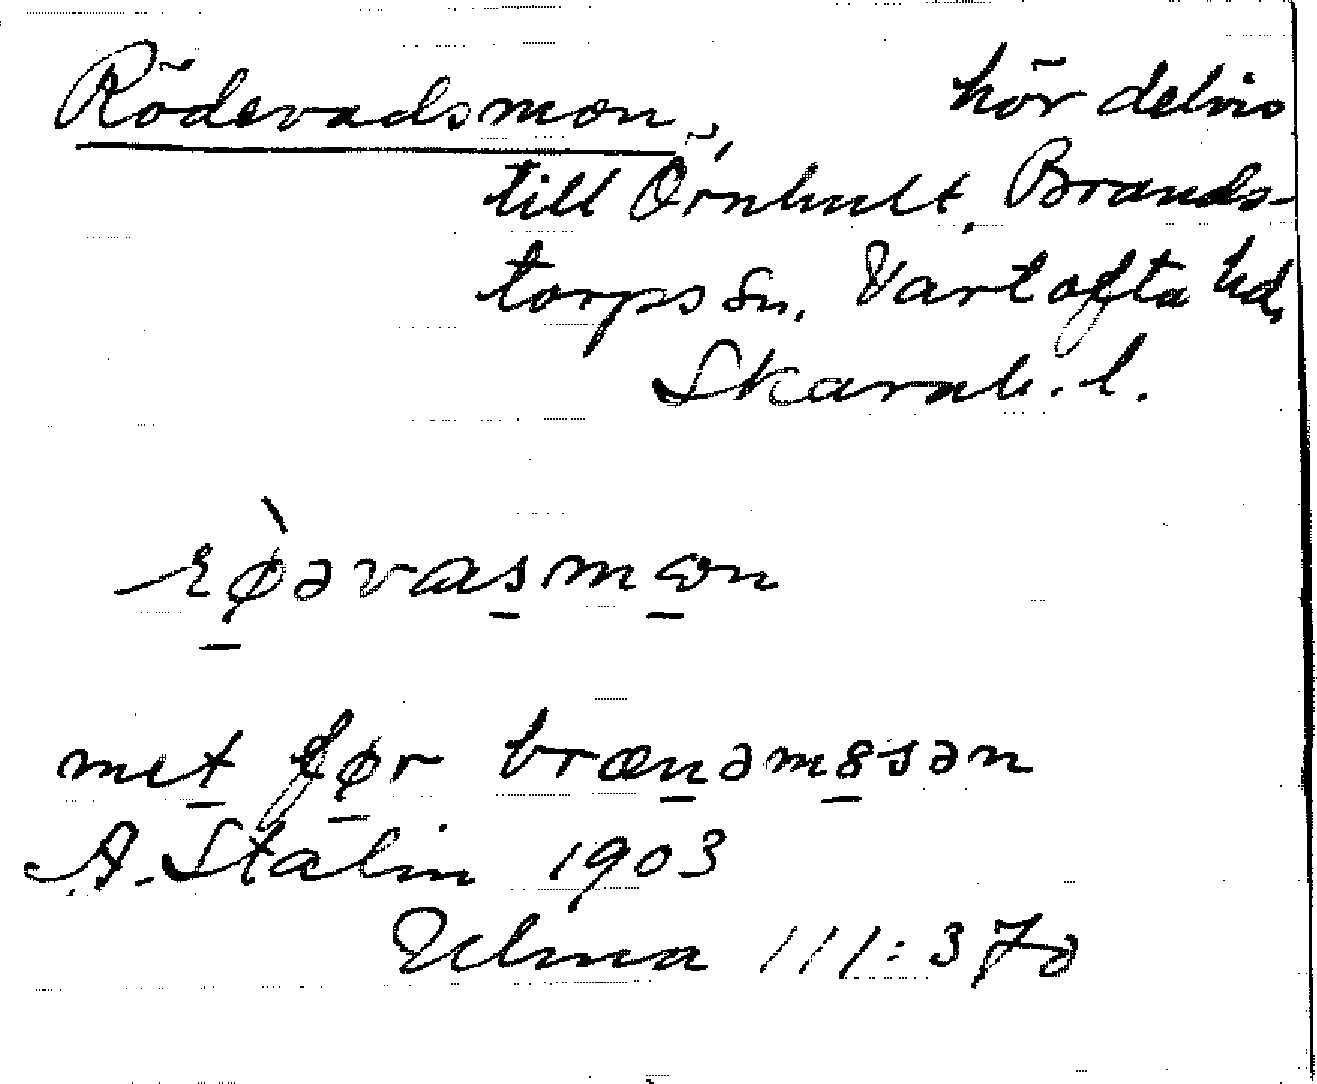 Rödevadsmon, hör delvis
till Örnhult, Brands-
torps sn. Vartofta hd,
Skarab. l.
rø̀əvasmɷn
met før brænəmɞsən
A. Stalin 1903
Ulma 111:370